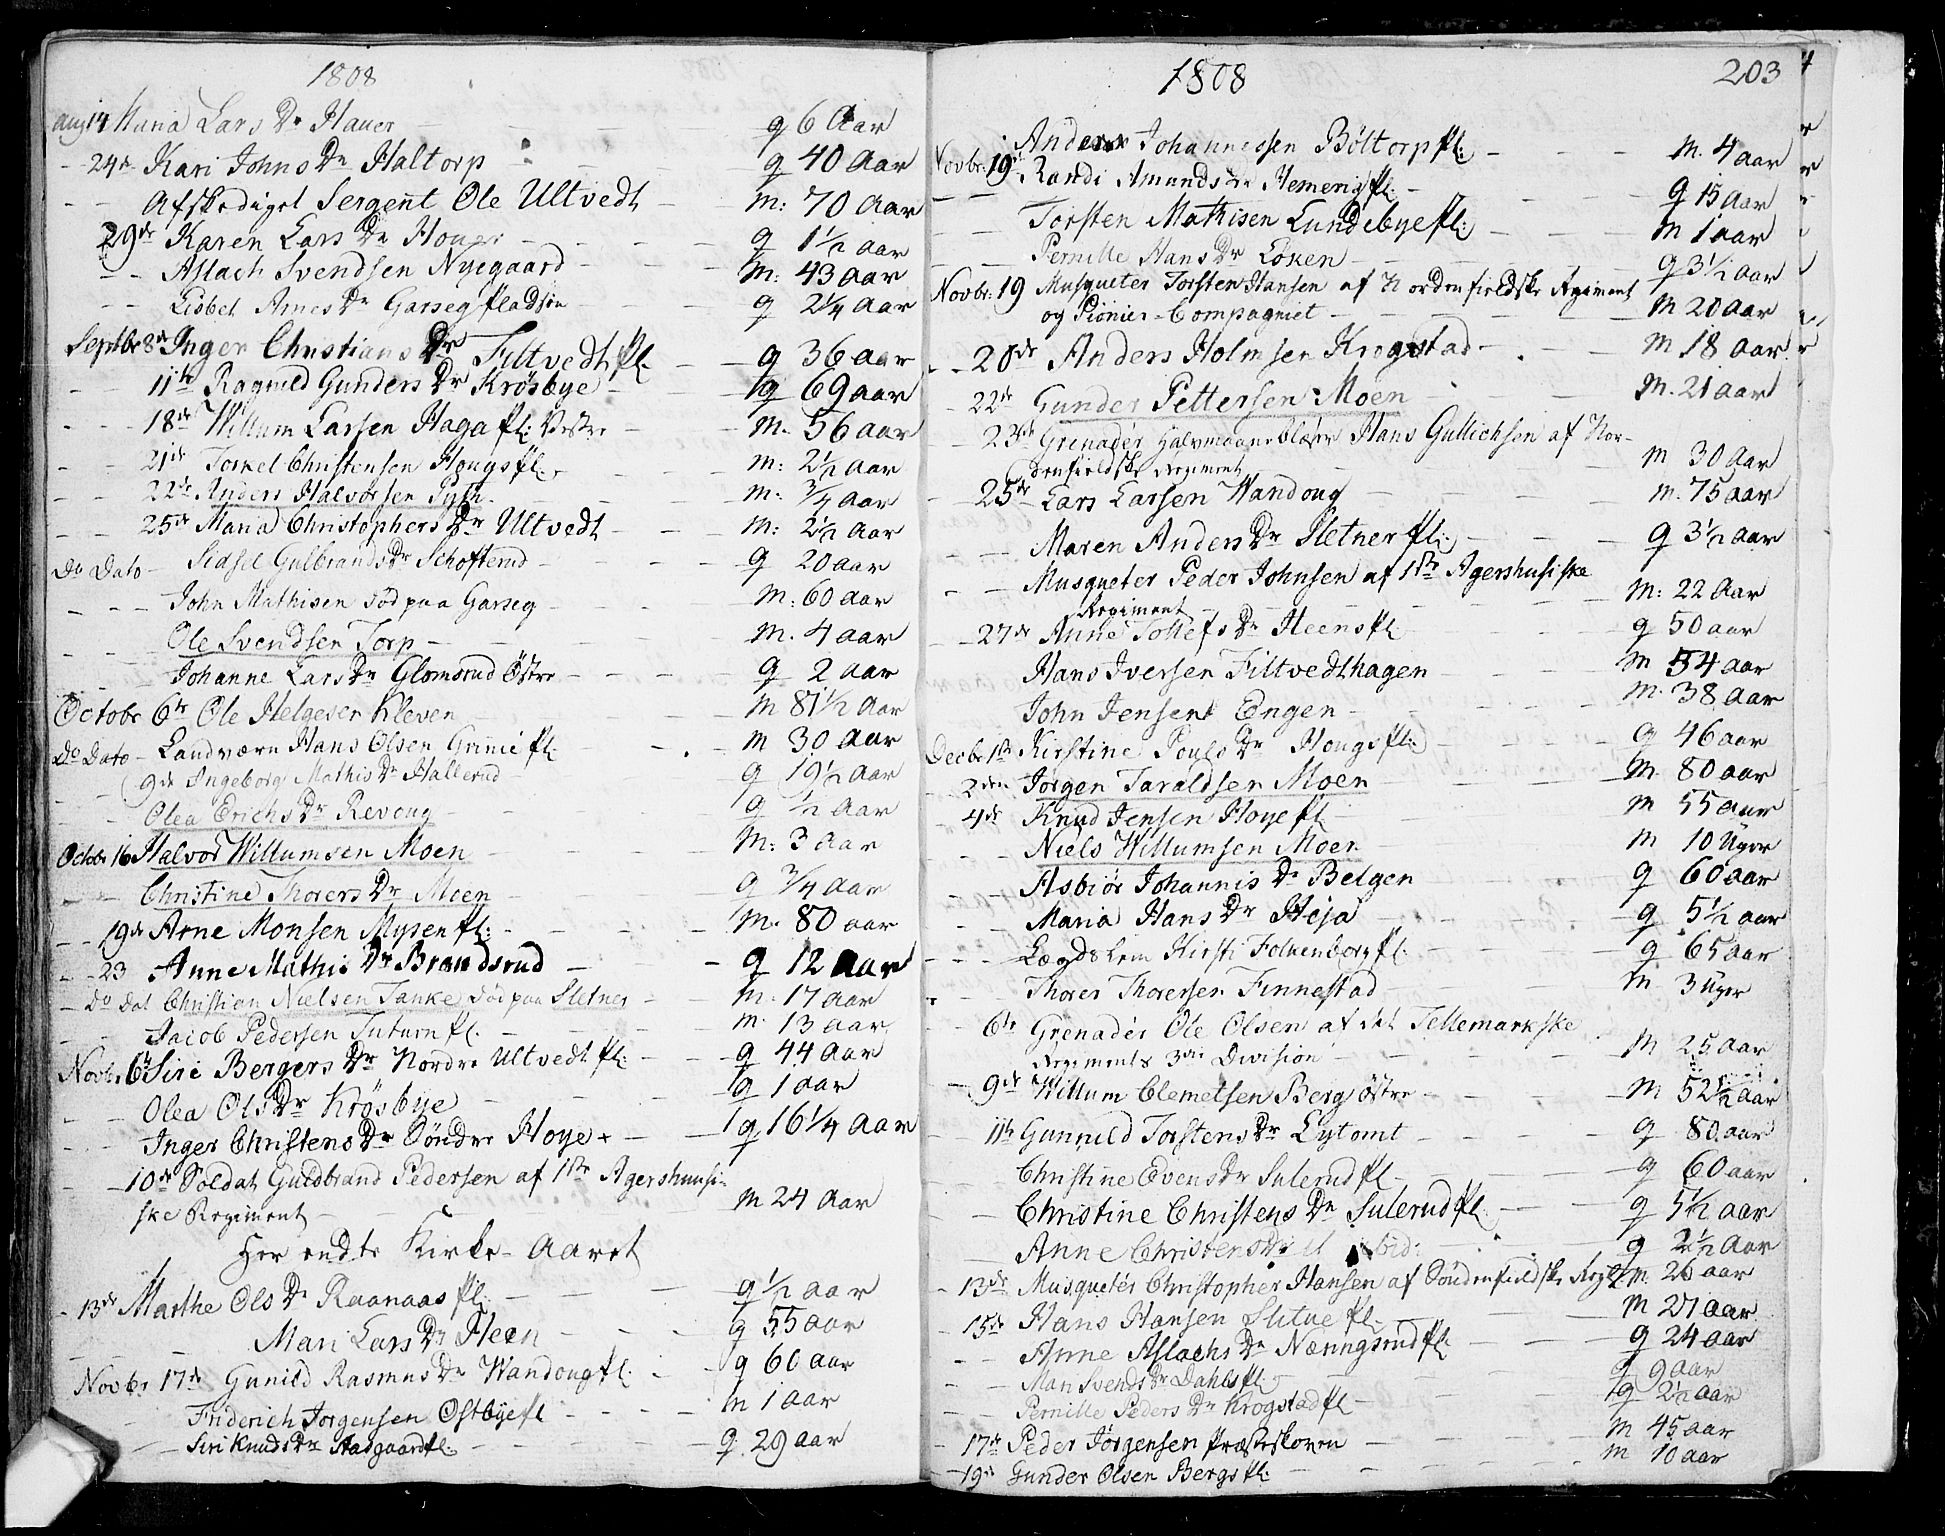 1808
aug 14 Maria Lars Dr Hauer — q 6 Aar
24de Kari Johns Dr Haltorp q 40 Aar
Afskediget Sergent Ole Ultvedt — m: 70 Aar
29de Karen Lars Dr q 1½ aar
Aslach Svendsen Nyegaard — m: 43 aar
Lisbet Arnes Dr Garsegpladsen q 2¼ aar
Septbr 8de Inger Christians Dr Filtvedt pl. — q 36 aar
11te Ragnild Gunders Dr Krösbye — q 69 aar
18de Willum Larsen Haga pl: Vestre — m. 56 aar
21de Torkel Christensen Hougspl. — m: 2½ aar
22de Anders Halvorsen m: ¾ aar
25de Maria Christophers Dr Ultvedt — m: 2½ aar
Do Dato — Sidsel Gulbrands Dr Schofterud — q 20 aar
John Mathisen död paa Garseg — m: 60 aar
Ole Svendsen Torp — m. 4 aar
Johanne Lars Dr Glomsrud Östre — q 2 aar
Octobr 6te Ole Helgesen Kleven m 81½ Aar
Do Dato — Landværn Hans Olsen Grinie pl. — m 30 aar
9de Ingeborg Mathis Dr Hallerud — q 19½ Aar
Olea Erichs Dr Revoug q ½ Aar
Octbr 16 Halvor Willumsen Moen — m: 3 Aar
Christine Thorers Dr Moen — q ¾ Aar
19de Arne Monsen Mysen pl: — m. 80 aar
23 Anne Mathis Dr Brandsrud — q 12 Aar
Do Dat Christian Nielsen Tanke död paa Sletner — m. 17 aar
Jacob Pedersen pl. — m. 13 aar
Novbr 6te Siri Bergers Dr Nordre Ultvedt pl: — q 44 Aar
Olea Ols Dr Krösbye q 1 aar
Inger Christens Dr Söndre Hoye — q 16¼ Aar
10de Soldat Guldbrand Pedersen af 1ste Agershuusi-
ske Regiment — m 24 aar
Her endte Kirke-Aaret
13de Marthe Ols Dr Raanaas pl. — q ½ aar
Mari Lars Dr Heen — q 55 aar
Novbr 17de Gunild Rasmus Dr Wandoug pl. — q 60 aar
Friderich Jörgensen Ostbye pl — m 1 aar
Siri Knuds Dr Aasgaard pl. — q 29 aar
1808
203
Anders Johannessen Böltorp pl: — m. 4 aar
Novbr 19de Randi Amunds Dr pl. — q 15 aar
Torsten Mathisen Lundebye pl: — m 1 aar
Pernille Hans Dr Löken — q 3½ aar
Novbr: 19 Musqueter Torsten Hansen af Nordenfieldske Regiment
og Pionier-Compagniet — m 20 aar
20de Anders Holmsen Krogstad — m 18 aar
22de Gunder Pettersen Moen — m. 21 aar
23de Grenadér Halvmaaneblæser Hans Gullichsen af Nor-
denfieldske Regiment — m 30 Aar
25de Lars Larsen Wandoug — m. 75 aar
Maren Anders Dr Sletner pl: — q 3½ aar
Musqueter Peder Johnsen af 1ste Agershusiske
Regiment — m: 22 Aar
27de Anne Tollefs Dr Heens pl — q 50 aar
Hans Iversen Filtvedthagen — m 54 aar
John Jensen Engen — m. 38 aar
Decbr 1ste Kirstine Pouls Dr Hougs pl: — q 46 aar
2den Jörgen Taraldsen Moen — m. 80 aar
4de Knud Jensen Hoye pl — m 55 aar
Niels Willumsen Moen — m 10 Uger
Asbiör Johannis Dr Belgen q 60 aar
Maria Hans Dr Heja — q 5½ aar
Lægdslem Kirsti Folkenborg pl. — q 65 aar
Thorer Thorersen Finnestad — m 3 Uger
6te Grenadér Ole Olsen af det Tellemarkske
Regiments 3die Division — m 25 aar
9de Willum Clemetsen Berg Östre — m 52½ aar
11te Gunnild Torstens Dr Eytomt — q 80 aar
Christine Evens Dr Sulerud pl — q 60 aar
Christine Christens Dr Sulerud pl — q 5½ aar
Anne Christens Dr ibid: q 2½ Aar
13de Musquetér Christopher Hansen af Söndenfieldske Regt m. 26 aar
15de Hans Hansen Slitue pl. — m 21 aar
Anne Aslachs Dr Næringsrud pl — q 24 aar
Mari Svends Dr Dahls pl: — q 9 aar
Pernille Peders Dr Krogstad pl — q 2½ aar
17de Peder Jörgensen Præsteskoven — m 45 aar
19de Gunder Olsen Bergs pl: — m 10 aar